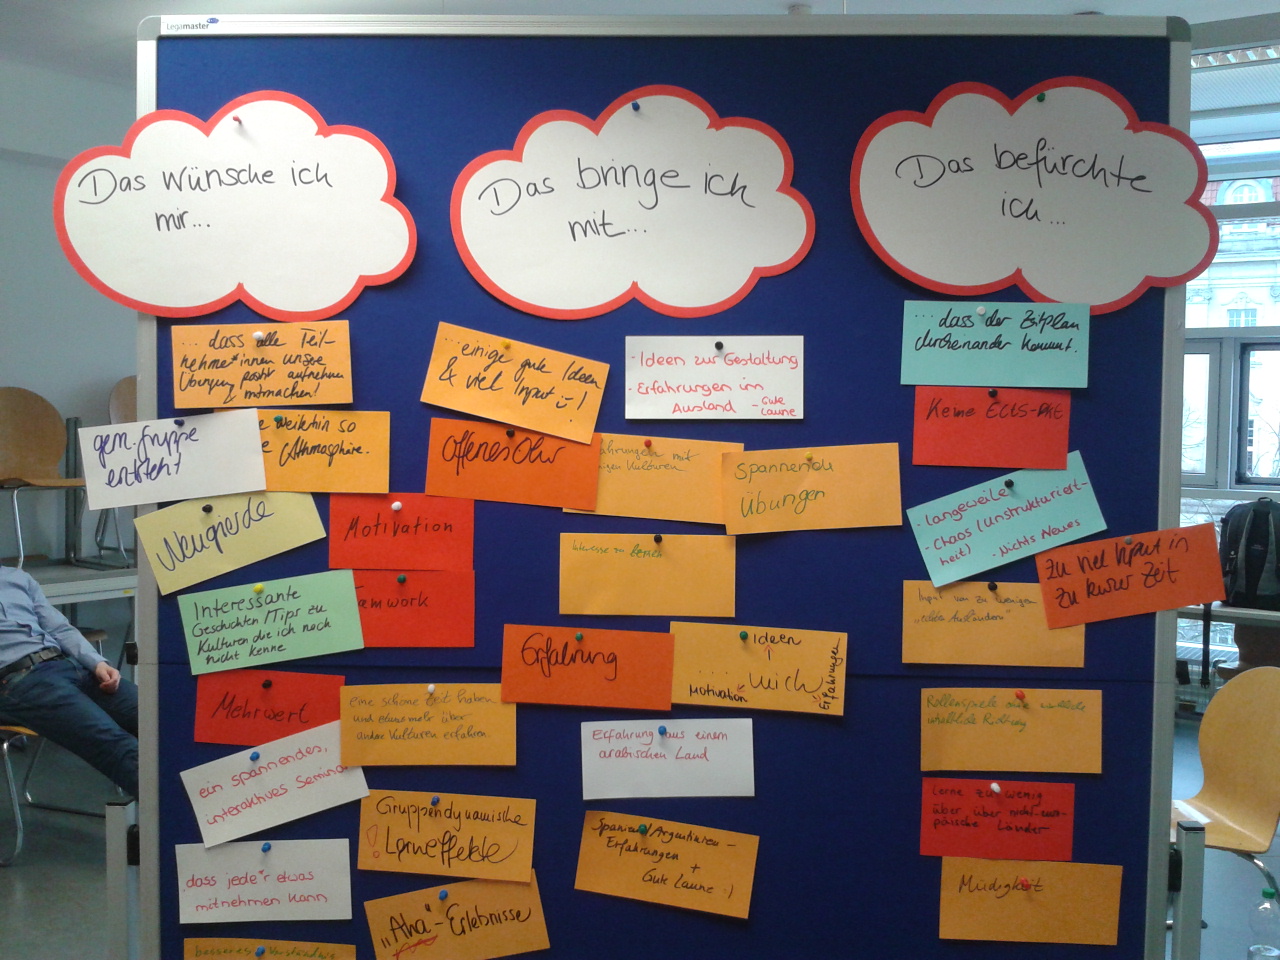 Legamaster
Das wünsche ich
mir...
... dass alle Teil-
nehme*innen unsere
Übung positiv aufnehmen
& mitmachen!
gem. Gruppe
entsteht
weiterhin so
Athmosphäre.
Neugierde
Motivation
Interessante
Geschichten / Tips zu
Kulturen die ich noch
nicht kenne
amwork
Mehrwert
eine schöne Zeit haben
und etwas mehr über
andere Kulturen erfahren.
ein spannendes,
interaktives Semina
Gruppendynamische
! Lerneffekte
dass jede*r etwas
mitnehmen kann
„Aha"-Erlebnisse
besseres Verständnis
Das bringe ich
mit...
...einige gute Ideen
& viel Input :-)!
- Ideen zur Gestaltung
- Erfahrungen im
Ausland - Gute
Laune
Offenes Ohr
ahrungen mit
igen Kulturen
Spannende
Übungen
Interesse zu lernen
Erfahrung
Ideen
.....Mich
Motivation
Erfahrungen
Erfahrung aus einem
arabischen Land
Spanien/Argentinien-
Erfahrungen
+
Gute Laune :)
Das befürchte
ich...
...dass der Zeitplan
durcheinander kommt.
Keine ECTS-PKTE
- Langeweile
- Chaos (Unstrukturiert-
heit) - Nichts Neues
Zu viel Input in
zu kurzer Zeit
Input von zu wenigen
"echten Ausländern"
Rollenspiele ohne wirkliche
inhaltliche Richtung
Lerne zu wenig
über über nicht-euro-
päische Länder
Müdigkeit